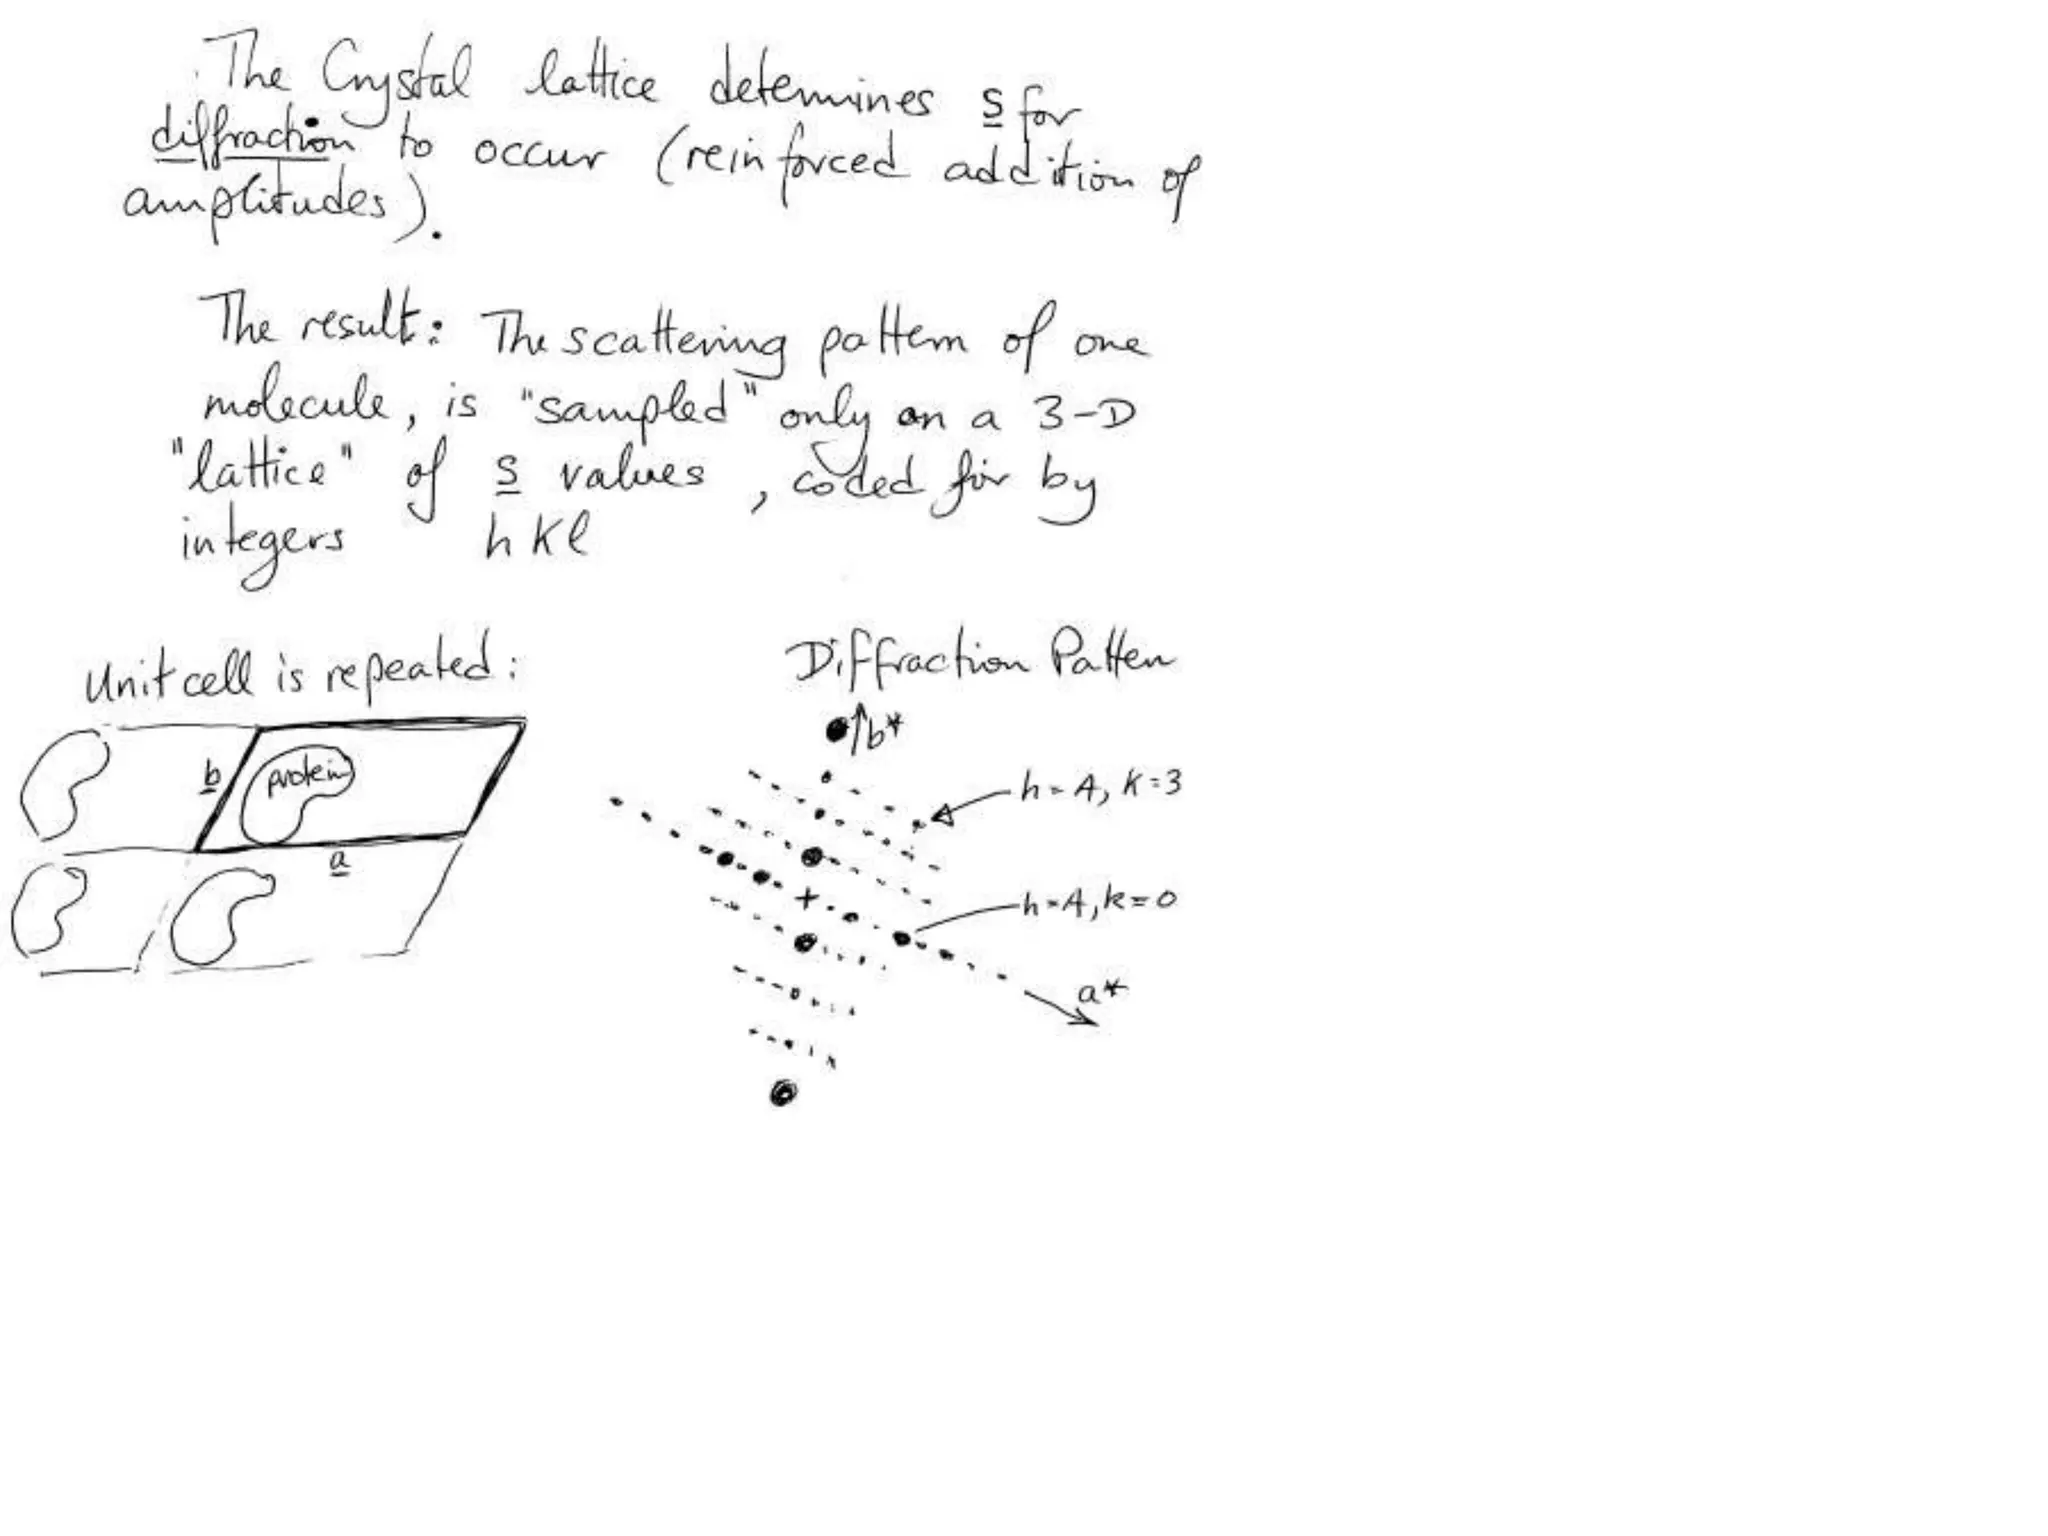 The Crystal lattice determines s for
diffraction to occur (reinforced addition of
amplitudes).
The result: The scattering pattern of one
molecule, is "sampled" only on a 3-D
"lattice" of s values, coded for by
integers h k l
Unit cell is repeated:
b
protein
a
Diffraction Patten
b*
h=4, k=3
h=4, k=0
a*